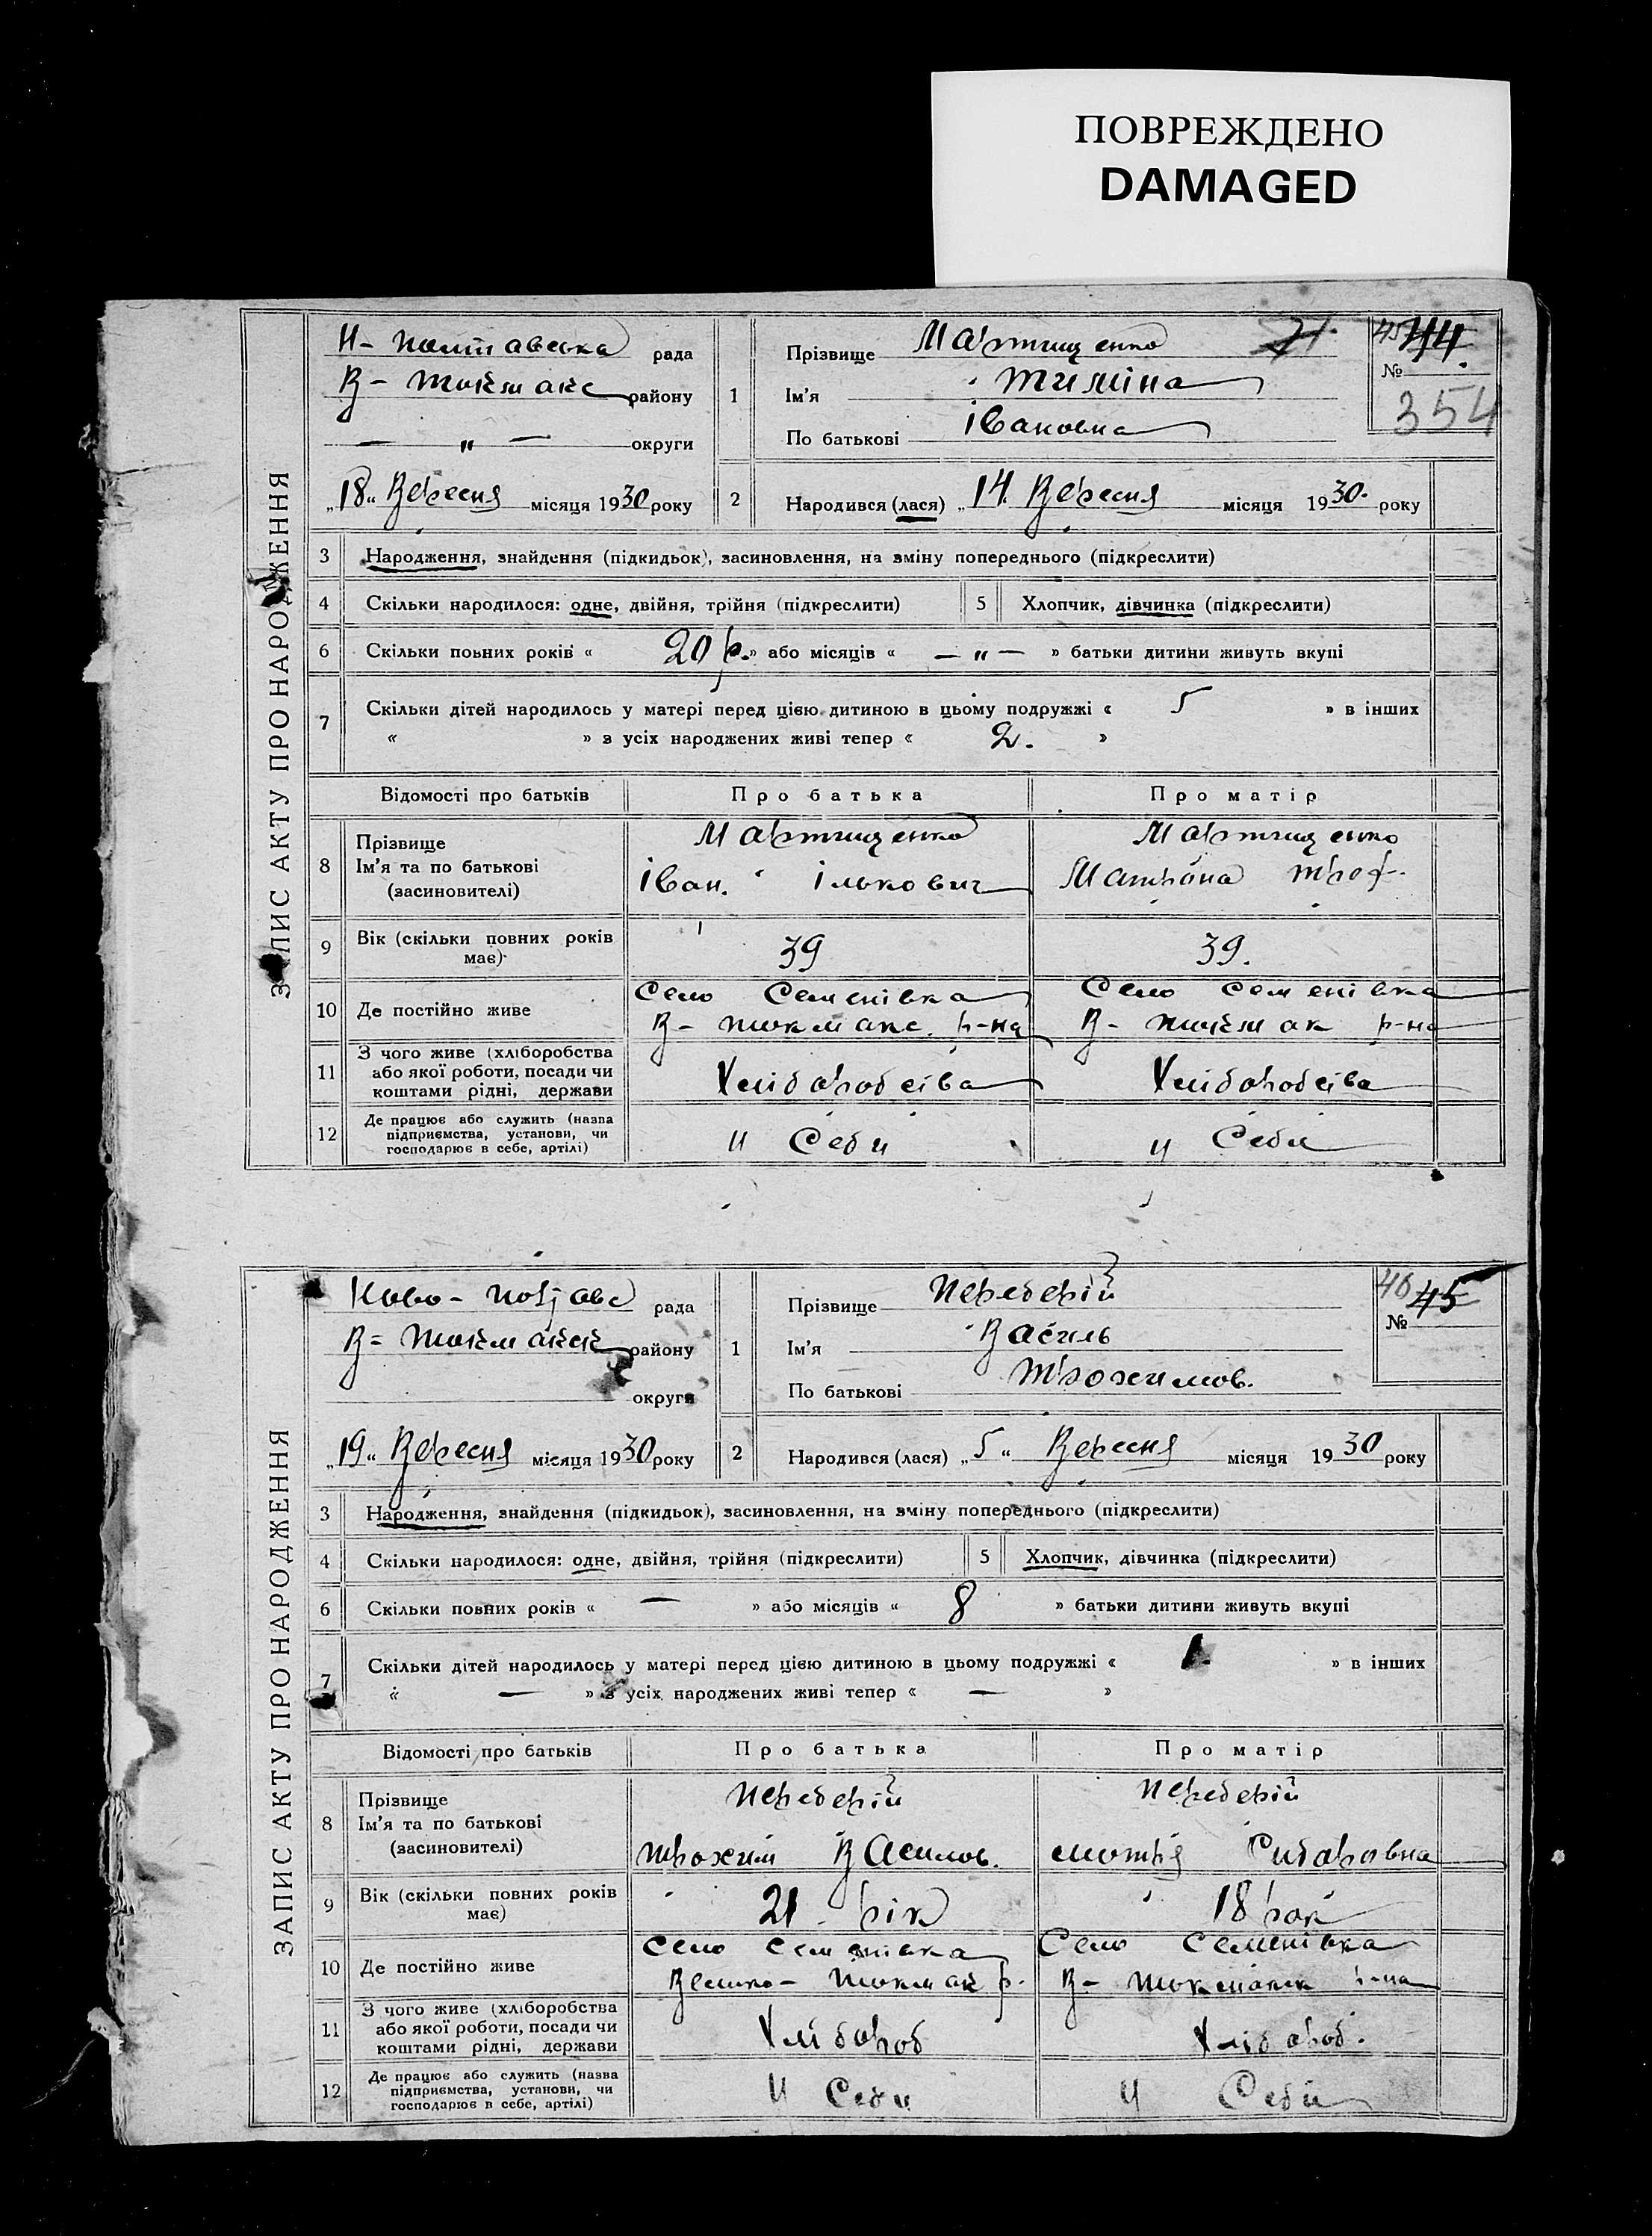 ПОВРЕЖДЕНО
DAMAGED
ЗАПИС АКТУ ПРО НАРОДЖЕННЯ
Н- Полтавська рада
В- Токмакс району
— „ — округи
„18" Вересня місяця 1930 року
1 Прізвище Мартищенко
Ім'я
По батькові Івановна
45 44.
№
354
2 Народився (лася) „14. Вересня місяця 1930. року
3 Народження, знайдення (підкидьок), засиновлення, на зміну попереднього (підкреслити)
4 Скільки народилося: одне, двійня, трійня (підкреслити) 5 Хлопчик, дівчинка (підкреслити)
6 Скільки повних років « 20 р. » або місяців « — „ — » батьки дитини живуть вкупі
7 Скільки дітей народилось у матері перед цією дитиною в цьому подружжі « 5 » в інших
« » з усіх народжених живі тепер « 2. »
Відомості про батьків Про батька Про матір
8 Прізвище Мартищенко Мартищенко
Ім'я та по батькові Іван. Ількович Матрона Троф.
(засиновителі)
9 Вік (скільки повних років має) 39 39.
10 Де постійно живе Село Семенівка Село Семенівка
В- Токмакс. р-на В- Токмак р-на
11 З чого живе (хліборобства
або якої роботи, посади чи
коштами рідні, держави Хліборобсіва Хліборобсіва
12 Де працює або служить (назва
підприємства, установи, чи
господарює в себе, артілі) У Себи У Себи
ЗАПИС АКТУ ПРО НАРОДЖЕННЯ
Ново- Полтавс рада
В= Токмакск району
округи
„19" Вересня місяця 1930 року
1 Прізвище Передерій
Ім'я Василь
По батькові Трохимов.
46 45
№
2 Народився (лася) „5" Вересня місяця 1930 року
3 Народження, знайдення (підкидьок), засиновлення, на зміну попереднього (підкреслити)
4 Скільки народилося: одне, двійня, трійня (підкреслити) 5 Хлопчик, дівчинка (підкреслити)
6 Скільки повних років « — » або місяців « 8 » батьки дитини живуть вкупі
7 Скільки дітей народилось у матері перед цією дитиною в цьому подружжі « » в інших
« — » з усіх народжених живі тепер « — »
Відомості про батьків Про батька Про матір
8 Прізвище Передерій Передерій
Ім'я та по батькові
(засиновителі) Трохим Василов. Мотря Сидоровна
9 Вік (скільки повних років має) 21 рік 18 рок
10 Де постійно живе Село Семенівка Село Семенівка
Велико- Токмак р. В- Токмакск р-на
11 З чого живе (хліборобства
або якої роботи, посади чи
коштами рідні, держави Хлібороб Хлібороб.
12 Де працює або служить (назва
підприємства, установи, чи
господарює в себе, артілі) У Себи У Себи